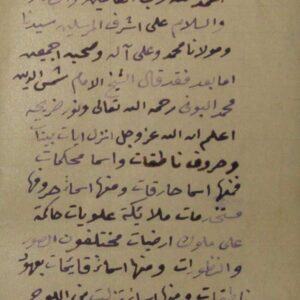 والسلام على اشرف المرسلين سيدنا
ومولانا محمد وعلى آله وصحبه اجمعين
اما بعد فقد قال الشيخ الامام شمس الدين
محمد البونى رحمه الله تعالى ونور ضريحه
اعلم ان الله عز وجل انزل ايات بينات
وحروف ناطقات واسما محكمات
فمنها اسما حارقات ومنها اسماء حروفها
ملايكة علويات حاكمة
على ملوك ارضيات مختلفون الصور
ومنها اسماء